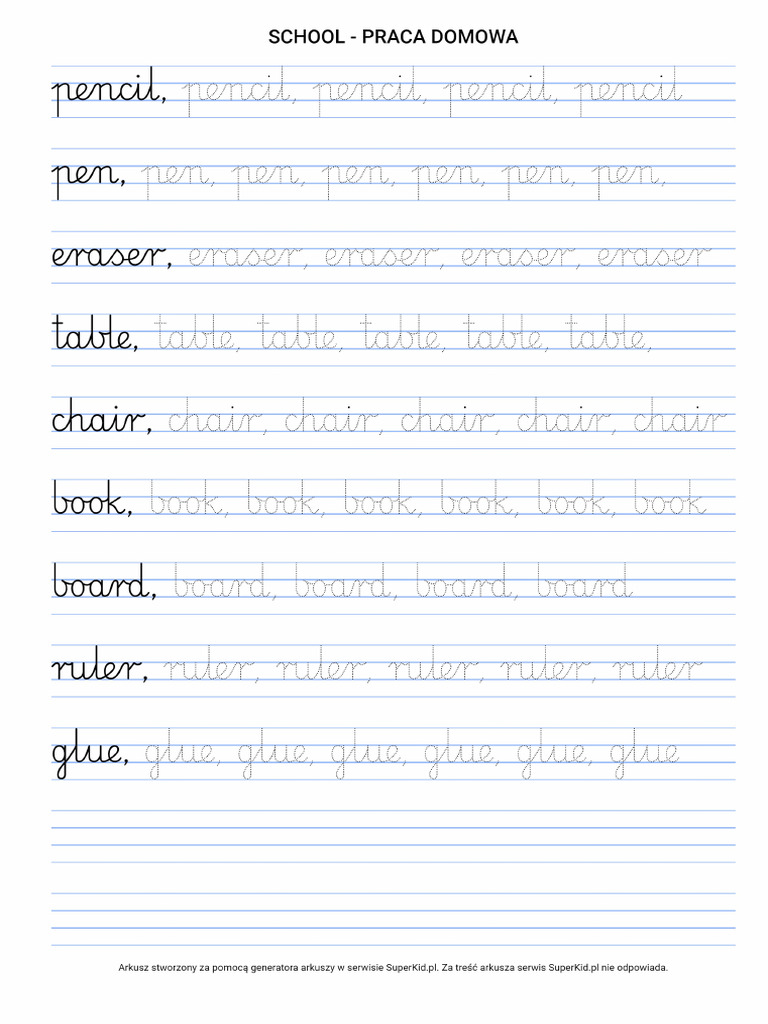 SCHOOL - PRACA DOMOWA
pencil, pencil, pencil, pencil, pencil
pen, pen, pen, pen, pen, pen, pen,
eraser, eraser, eraser, eraser, eraser
table, table, table, table, table, table,
chair, chair, chair, chair, chair, chair
book, book, book, book, book, book, book
board, board, board, board, board
ruler, ruler, ruler, ruler, ruler, ruler
glue, glue, glue, glue, glue, glue, glue
Arkusz stworzony za pomocą generatora arkuszy w serwisie SuperKid.pl. Za treść arkusza serwis SuperKid.pl nie odpowiada.